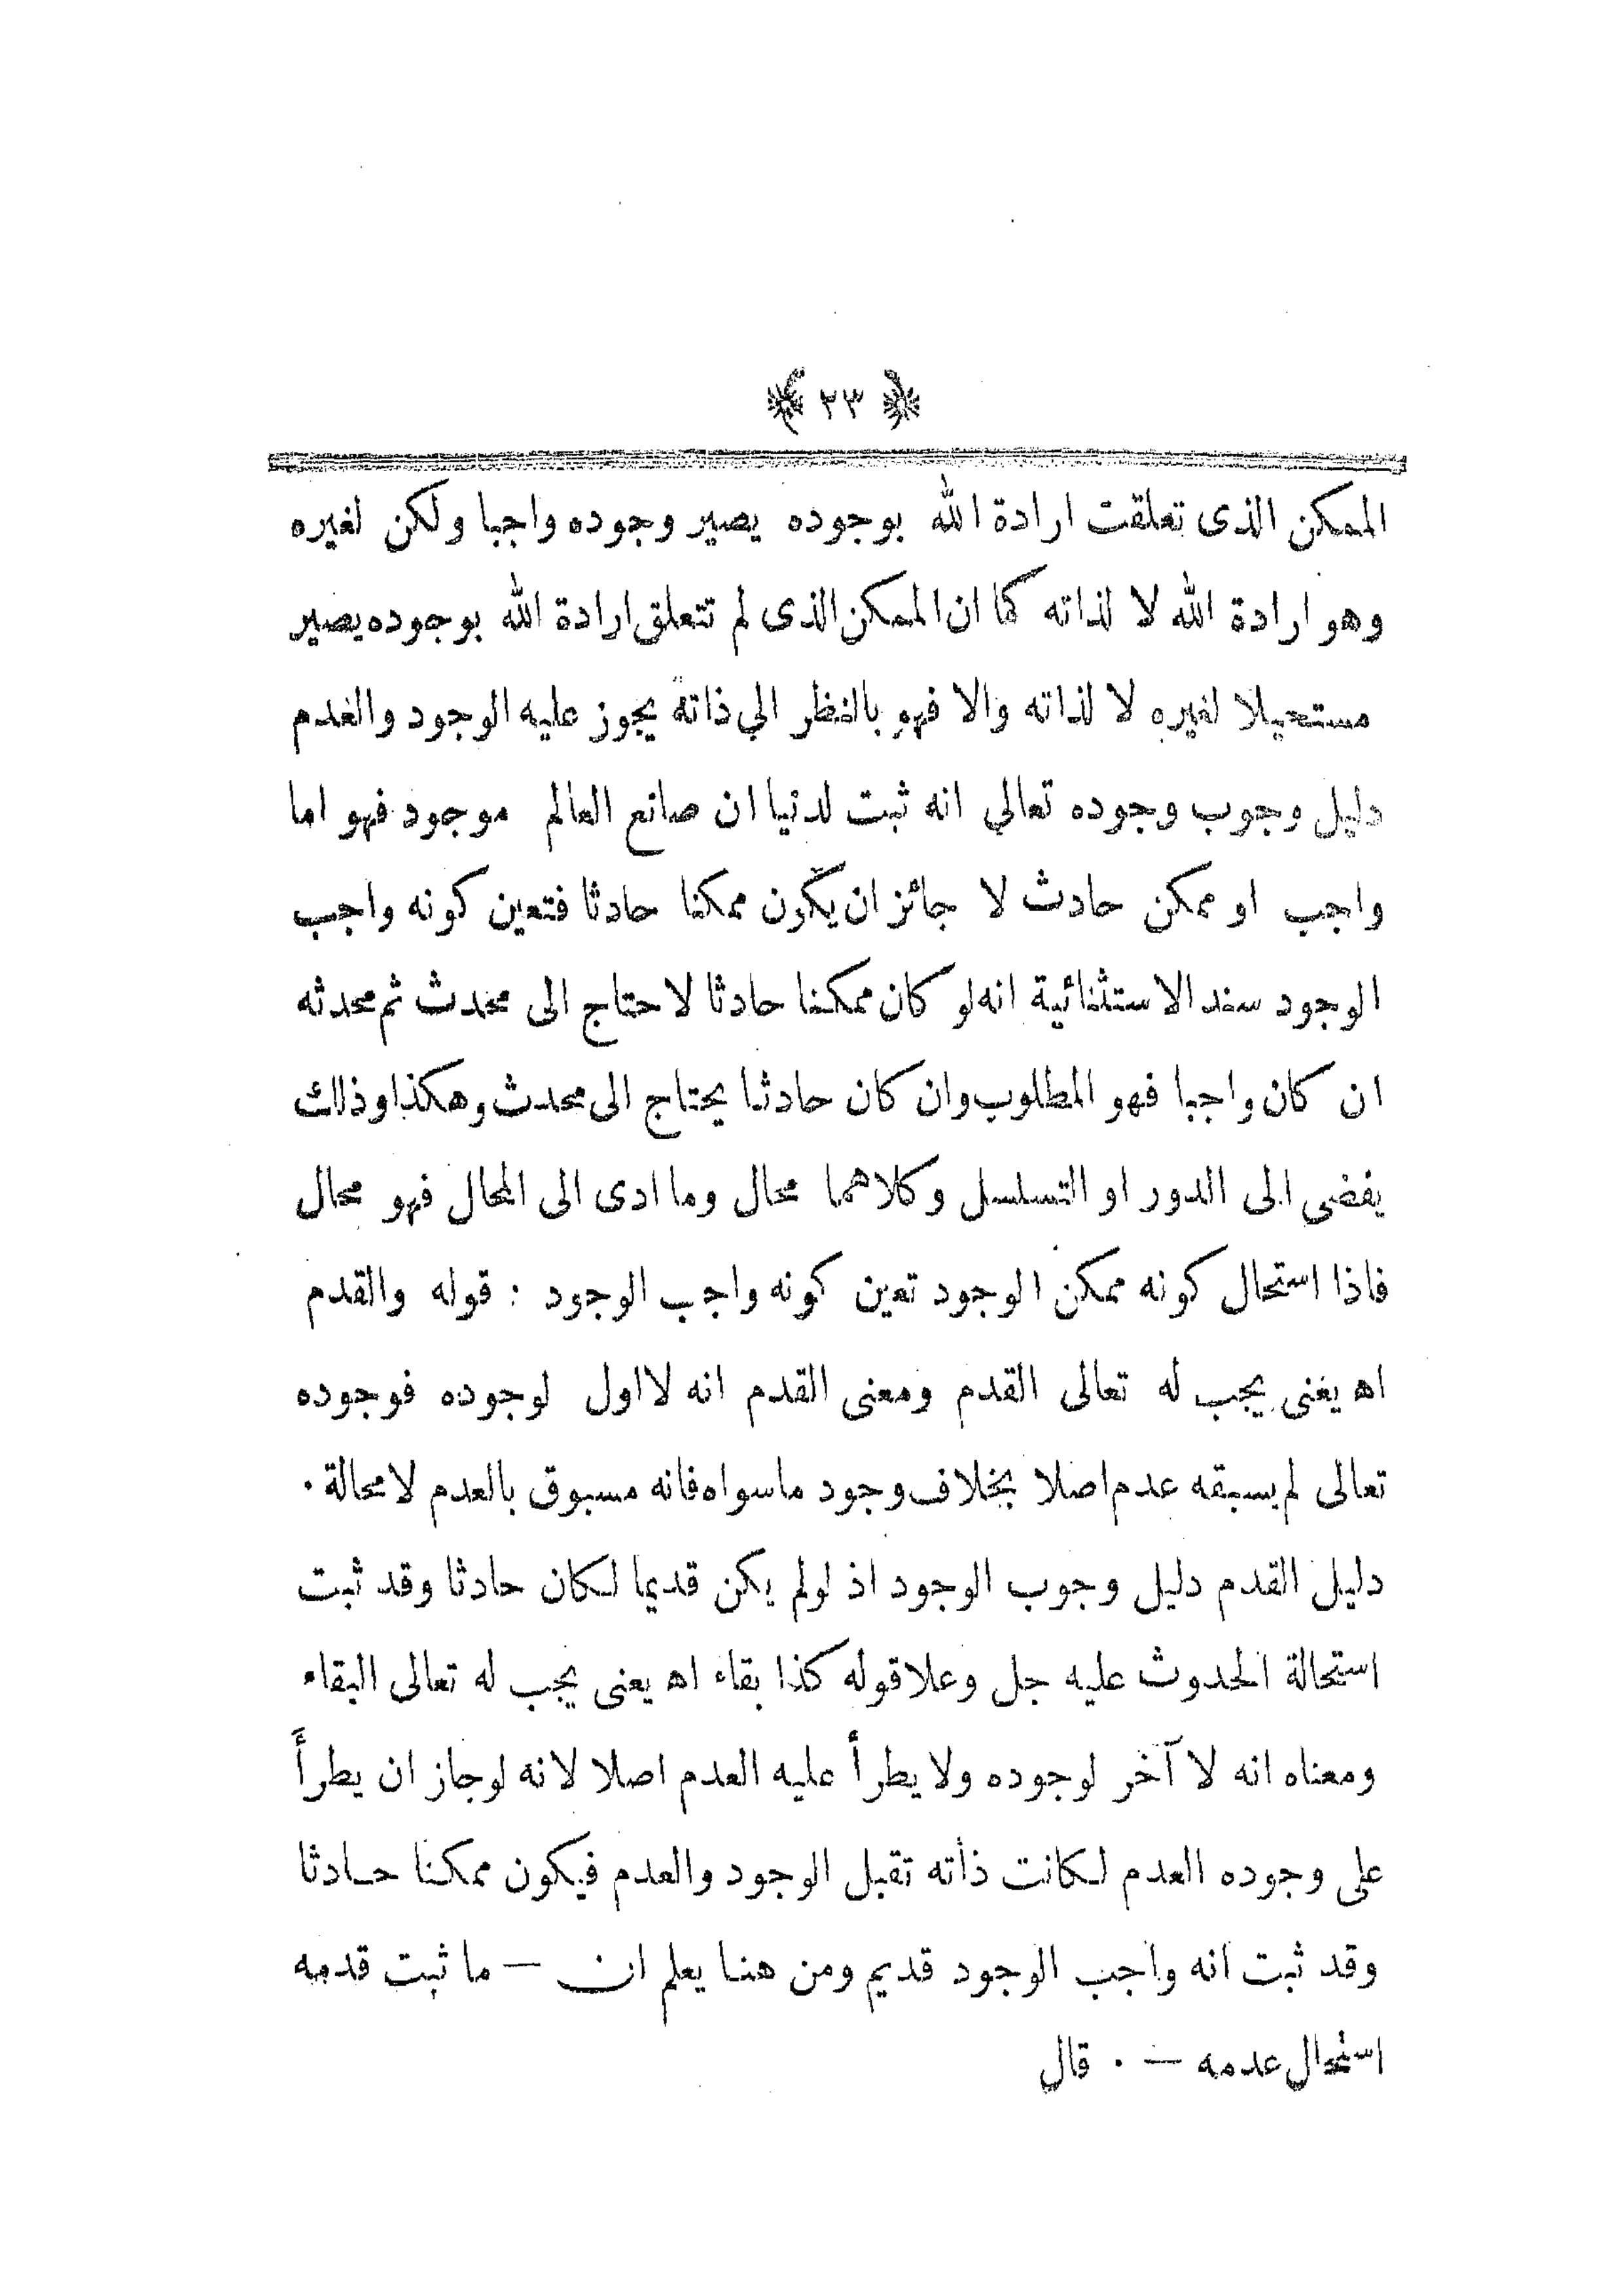 ٢٣
الممكن الذى تعلقت ارادة الله بوجوده يصير وجوده واجبا ولكن لغيره
وهو ارادة الله لا لذاته كما ان الممكن الذى لم تتعلق ارادة الله بوجوده يصير
مستحيلا لغيره لا لذاته والا فهو بالنظر الي ذاته يجوز عليه الوجود والعدم
دليل وجوب وجوده تعالي انه ثبت لدنيا ان صانع العالم موجود فهو اما
واجب او ممكن حادث لا جائز ان يكون ممكنا حادثا فتعين كونه واجب
الوجود سند الاستثنائية انه لو كان ممكنا حادثا لاحتاج الى محدث ثم محدثه
ان كان واجبا فهو المطلوب وان كان حادثا يحتاج الى محدث وهكذا وذلك
يفضى الى الدور او التسلسل وكلاهما محال وما ادى الى المحال فهو محال
فاذا استحال كونه ممكن الوجود تعين كونه واجب الوجود : قوله والقدم
اه يعنى يجب له تعالى القدم ومعنى القدم انه لا اول لوجوده فوجوده
تعالى لم يسبقه عدم اصلا بخلاف وجود ما سواه فانه مسبوق بالعدم لا محالة ٠
دليل القدم دليل وجوب الوجود اذ لو لم يكن قديما لكان حادثا وقد ثبت
استحالة الحدوث عليه جل وعلا قوله كذا بقاء اه يعنى يجب له تعالى البقاء
ومعناه انه لا آخر لوجوده ولا يطرأ عليه العدم اصلا لانه لو جاز ان يطرأ
على وجوده العدم لكانت ذاته تقبل الوجود والعدم فيكون ممكنا حادثا
وقد ثبت انه واجب الوجود قديم ومن هنا يعلم ان — ما ثبت قدمه
استحال عدمه — ٠ قال